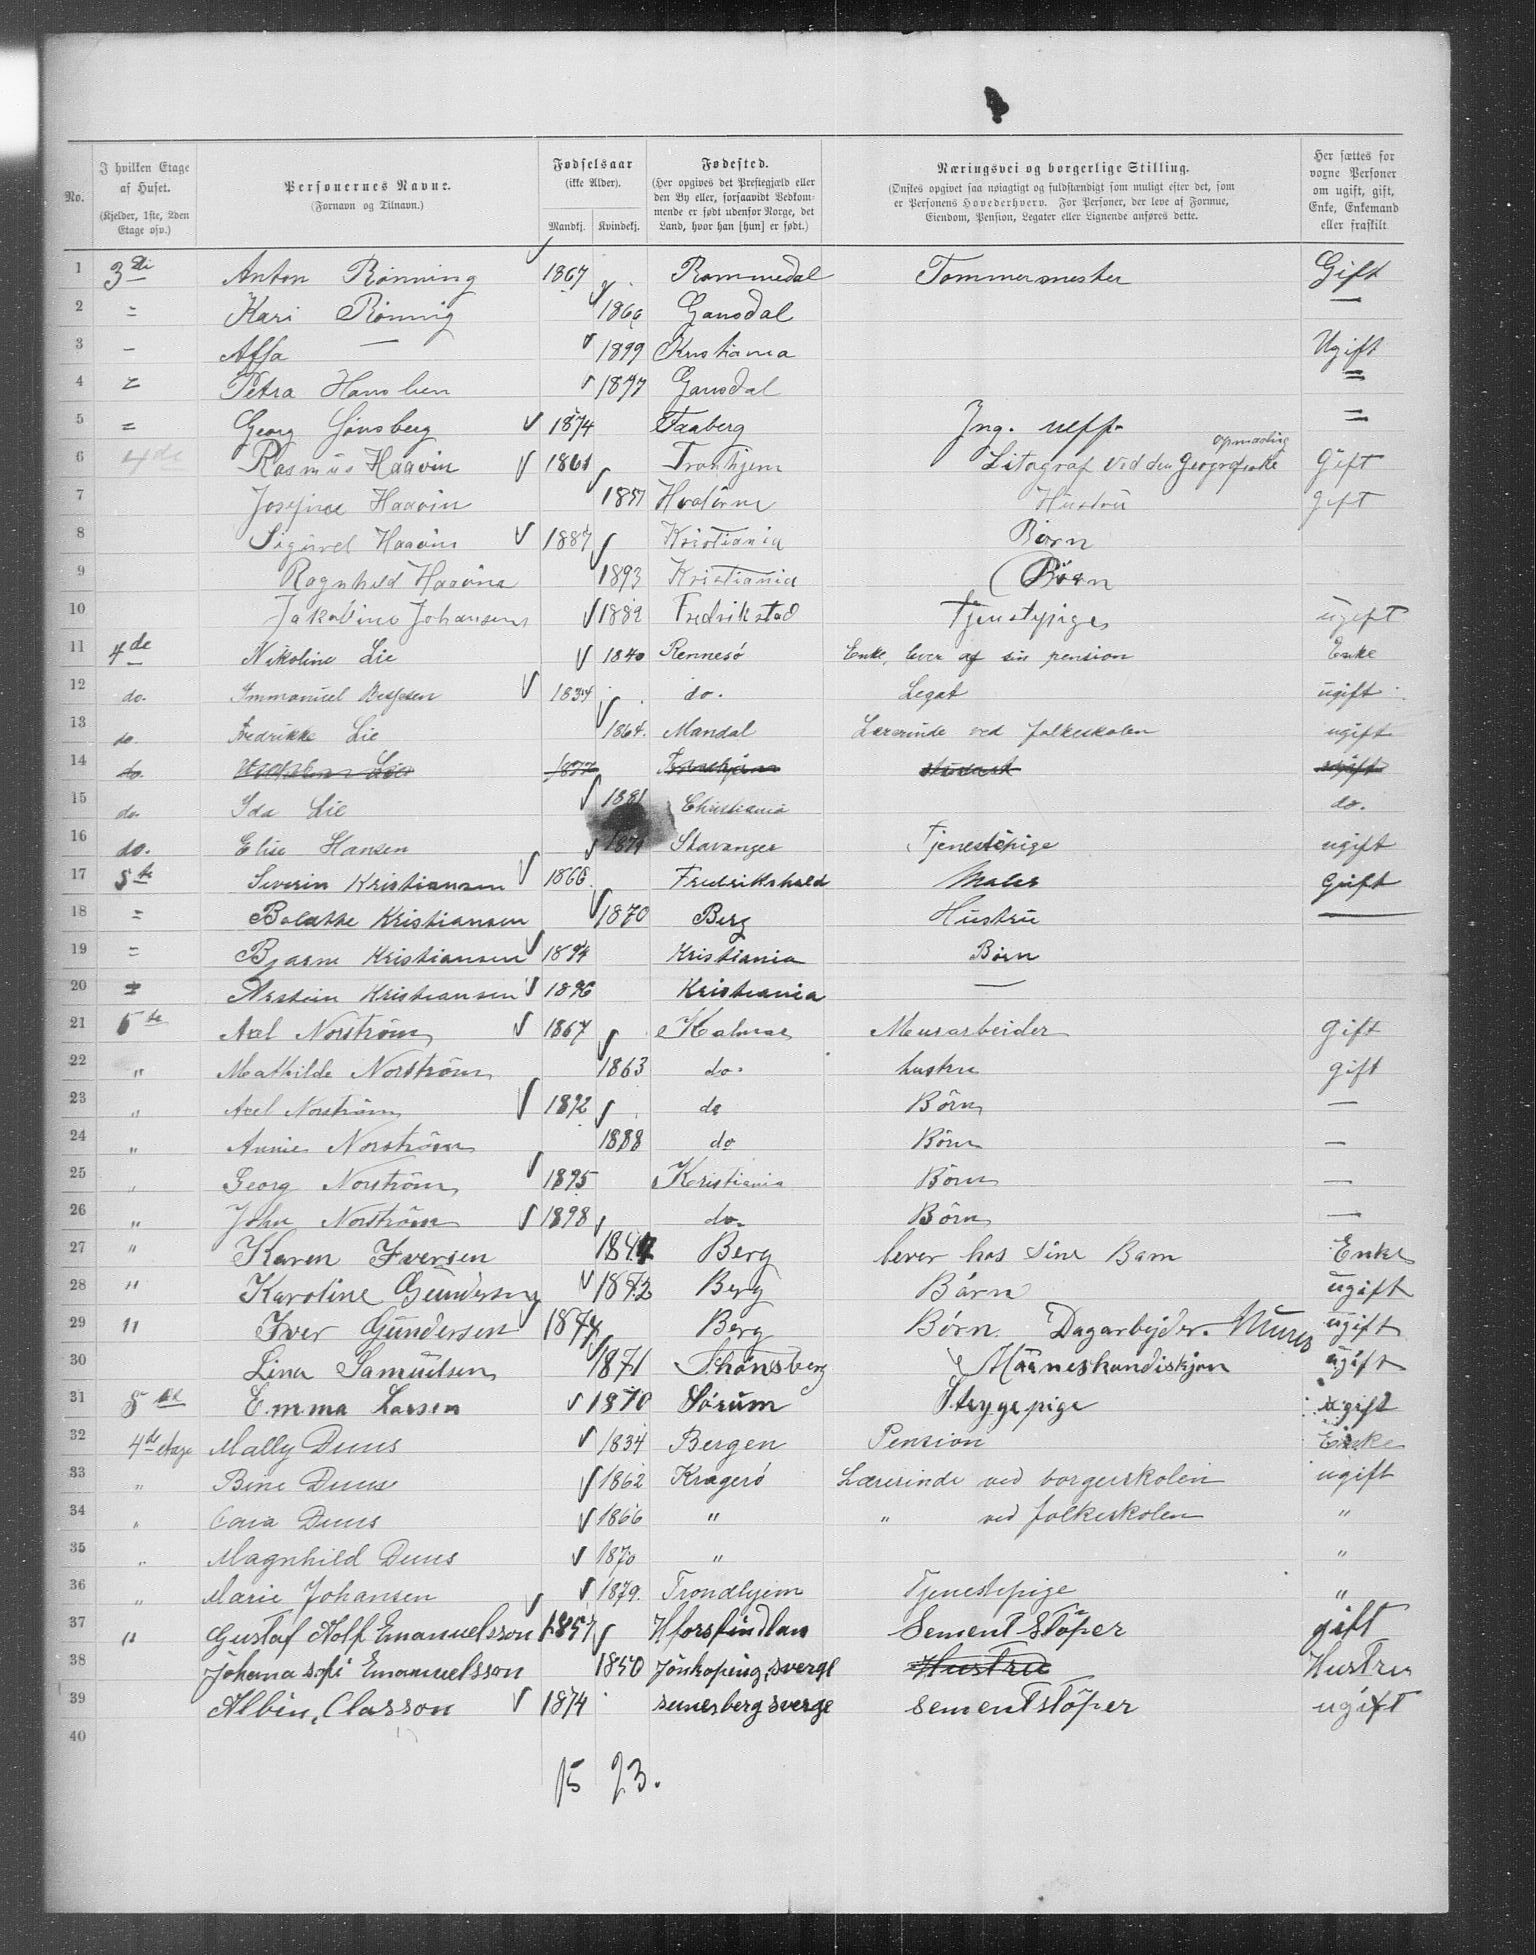 No. I hvilken Etage af Huset. (Kjelder, 1ste, 2den Etage osv.) Personernes Navne. (Fornavn og Tilnavn.) Fødselsaar (ikke Alder). Mandkj. Kvindekj. Fødested. (Her opgives det Prestegjæld eller den By eller, forsaavidt Vedkommende er født udenfor Norge, det Land, hvor han [hun] er født.) Næringsvei og borgerlige Stilling. (Ønskes opgivet saa nøiagtigt og fuldstændigt som muligt efter det, som er Personens Hovederhverv. For Personer, der leve af Formue, Eiendom, Pension, Legater eller Lignende anføres dette. Her sættes for voxne Personer om ugift, gift, Enke, Enkemand eller fraskilt
1 3die Anton Rønning 1867 Rommedal Tommermester Gift
2 = Kari Rønnig 1866 Gausdal —
3 – Assa — 1899 Kristiania Ugift
4 = Petra Hanslien 1877 Gausdal =
5 = Georg Lønsberg 1874 Faaberg Ing. =
6 4de Rasmus Haavin 1861 Tronhjem Litograf ved den Geografiske opmaaling Gift
7 Josefine Haavin 1857 Hvalørne Hustru gift
8 Sigurd Haavin 1887 Kristiania Børn
9 Ragnhild Haavin 1893 Kristiania Børn
10 Jakobine Johansen 1882 Fredrikstad Tjenstepige ugift
11 4de Nikoline Lie 1840 Rennesø Enke, lever af sin pension Enke
12 do. Immanuel 1834 do. Legat ugift
13 do. Fredrikke Lie 1864. Mandal Lærerinde ved folkeskolen ugift
14 do. Lie 1877 student ugift
15 do. Ida Lie 1881 Christiania do.
16 do. Elise Hansen 1879 Stavanger Tjenestepige ugift
17 5te Severin Kristiansen 1866 Fredrikshald Maler Gift
18 = Bolette Kristiansen 1870 Berg Hustru —
19 = Bjarne Kristiansen 1894 Kristiania Børn
20 = Kristiansen 1896 Kristiania —
21 5te Axel Norström 1867 Kalmar Murarbeider gift
22 " Mathilde Norström 1863 do. hustru gift
23 " Axel Norström 1892 do Börn —
24 " Annie Norström 1888 do Börn —
25 " Georg Norström 1895 Kristiania Börn —
26 " John Norström 1898 do. Börn —
27 " Karen Iversen 1844 Berg lever hos sine Barn Enke
28 " Karoline Gundersen 1872 Berg Bårn ugift
29 " Iver Gundersen 1877 Berg Børn. Dagarbejder. Murer ugift
30 Lina Samuelsen 1871 ugift
31 5te Emma Larsen 1870 Sørum Strygepige ugift
32 4de etage Mally Duus 1834 Bergen Pension Enke
33 " Bine Duus 1862 Kragerø Lærerinde ved borgerskolen ugift
34 " Duus 1866 " " ved folkeskolen "
35 " Magnhild Duus 1870 " "
36 " Marie Johansen 1879. Trondhjem Tjenestepige "
37 " Gustaf Adolf Emanuelsson 1857 Sement Stöper gift
38 Johana sofi Emanuelsson 1850 Jönkoping, sverge Hustru Hustru
39 Albin, Classon 1874 sverge sementstöper ugift
40
15 23.